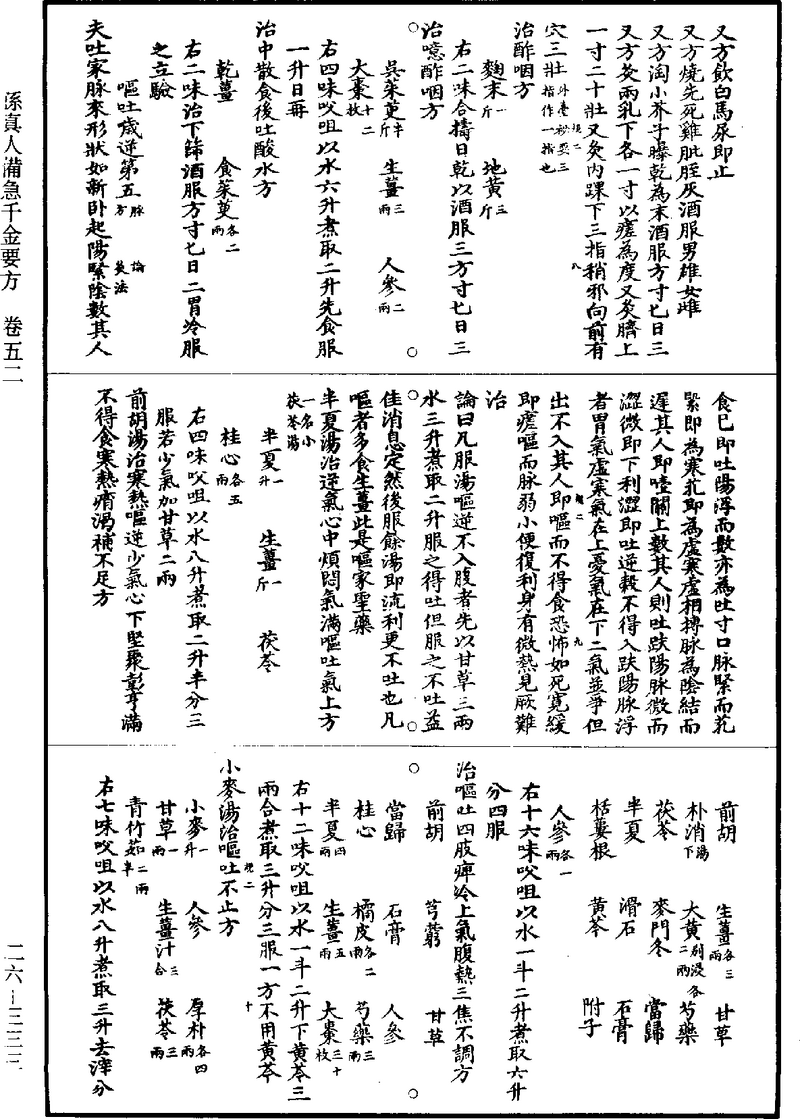 又方飲白馬尿即止
又方燒先死雞肶胵灰酒服男雄女雌
又方淘小芥子曝乾為末酒服方寸匕日三
又方灸兩乳下各一寸以瘥為度又灸臍上
一寸二十壯又灸內踝下三指稍邪向前有
穴三壯外臺秘要三指作一指也
治酢咽方
麴末一斤 地黃三斤
右二味合擣日乾以酒服三方寸匕日三
治噫酢咽方
吳茱萸半斤 生薑三兩 人參二兩
大棗十二枚
右四味㕮咀以水六升煮取二升先食服
一升日再
治中散食後吐酸水方
乾薑 食茱萸各二兩
右二味治下篩酒服方寸匕日二胃冷服
之立驗
嘔吐噦逆第五脈 論 方 灸法
夫吐家脉來形狀如新卧起陽緊陰數其人
食已即吐陽浮而數亦為吐寸口脉緊而芤
緊即為寒芤即為虛寒虛相搏脉為陰結而
遲其人即噎關上數其人則吐趺陽脉微而
澀微即下利澀即吐逆穀不得入趺陽脉浮
者胃氣虛寒氣在上憂氣在下二氣並爭但
出不入其人即嘔而不得食恐怖如死寬緩
即瘥嘔而脉弱小便復利身有微熱見厥難
治
論曰凡服湯嘔逆不入腹者先以甘草三兩
水三升煮取二升服之得吐但服之不吐益
佳消息定然後服餘湯即流利更不吐也凡
嘔者多食生薑此是嘔家聖藥
半夏湯治逆氣心中煩悶氣滿嘔吐氣上方
一名小茯苓湯
半夏一升 生薑一斤 茯苓
桂心各五兩
右四味㕮咀以水八升煮取二升半分三
服若少氣加甘草二兩
前胡湯治寒熱嘔逆少氣心下堅聚彭亨滿
不得食寒熱消渴補不足方
前胡 生薑各三兩 甘草
朴消湯下 大黃別浸各二兩 芍藥
茯苓 麥門冬 當歸
半夏 滑石 石膏
栝蔞根 黃芩 附子
人參各一兩
右十六味㕮咀以水一斗二升煮取六升
分四服
治嘔吐四肢痺冷上氣腹熱三焦不調方
前胡 芎藭 甘草
當歸 石膏 人參
桂心 橘皮各二兩 芍藥三兩
半夏四兩 生薑五兩 大棗三十枚
右十二味㕮咀以水一斗二升下黃芩三
兩合煮取三升分三服一方不用黃芩
小麥湯治嘔吐不止方
小麥一升 人參 厚朴各四兩
甘草一兩 生薑汁三合 茯苓三兩
青竹茹二兩半
右七味㕮咀以水八升煮取三升去滓分
孫真人備急千金要方 卷五二
二六—三三三